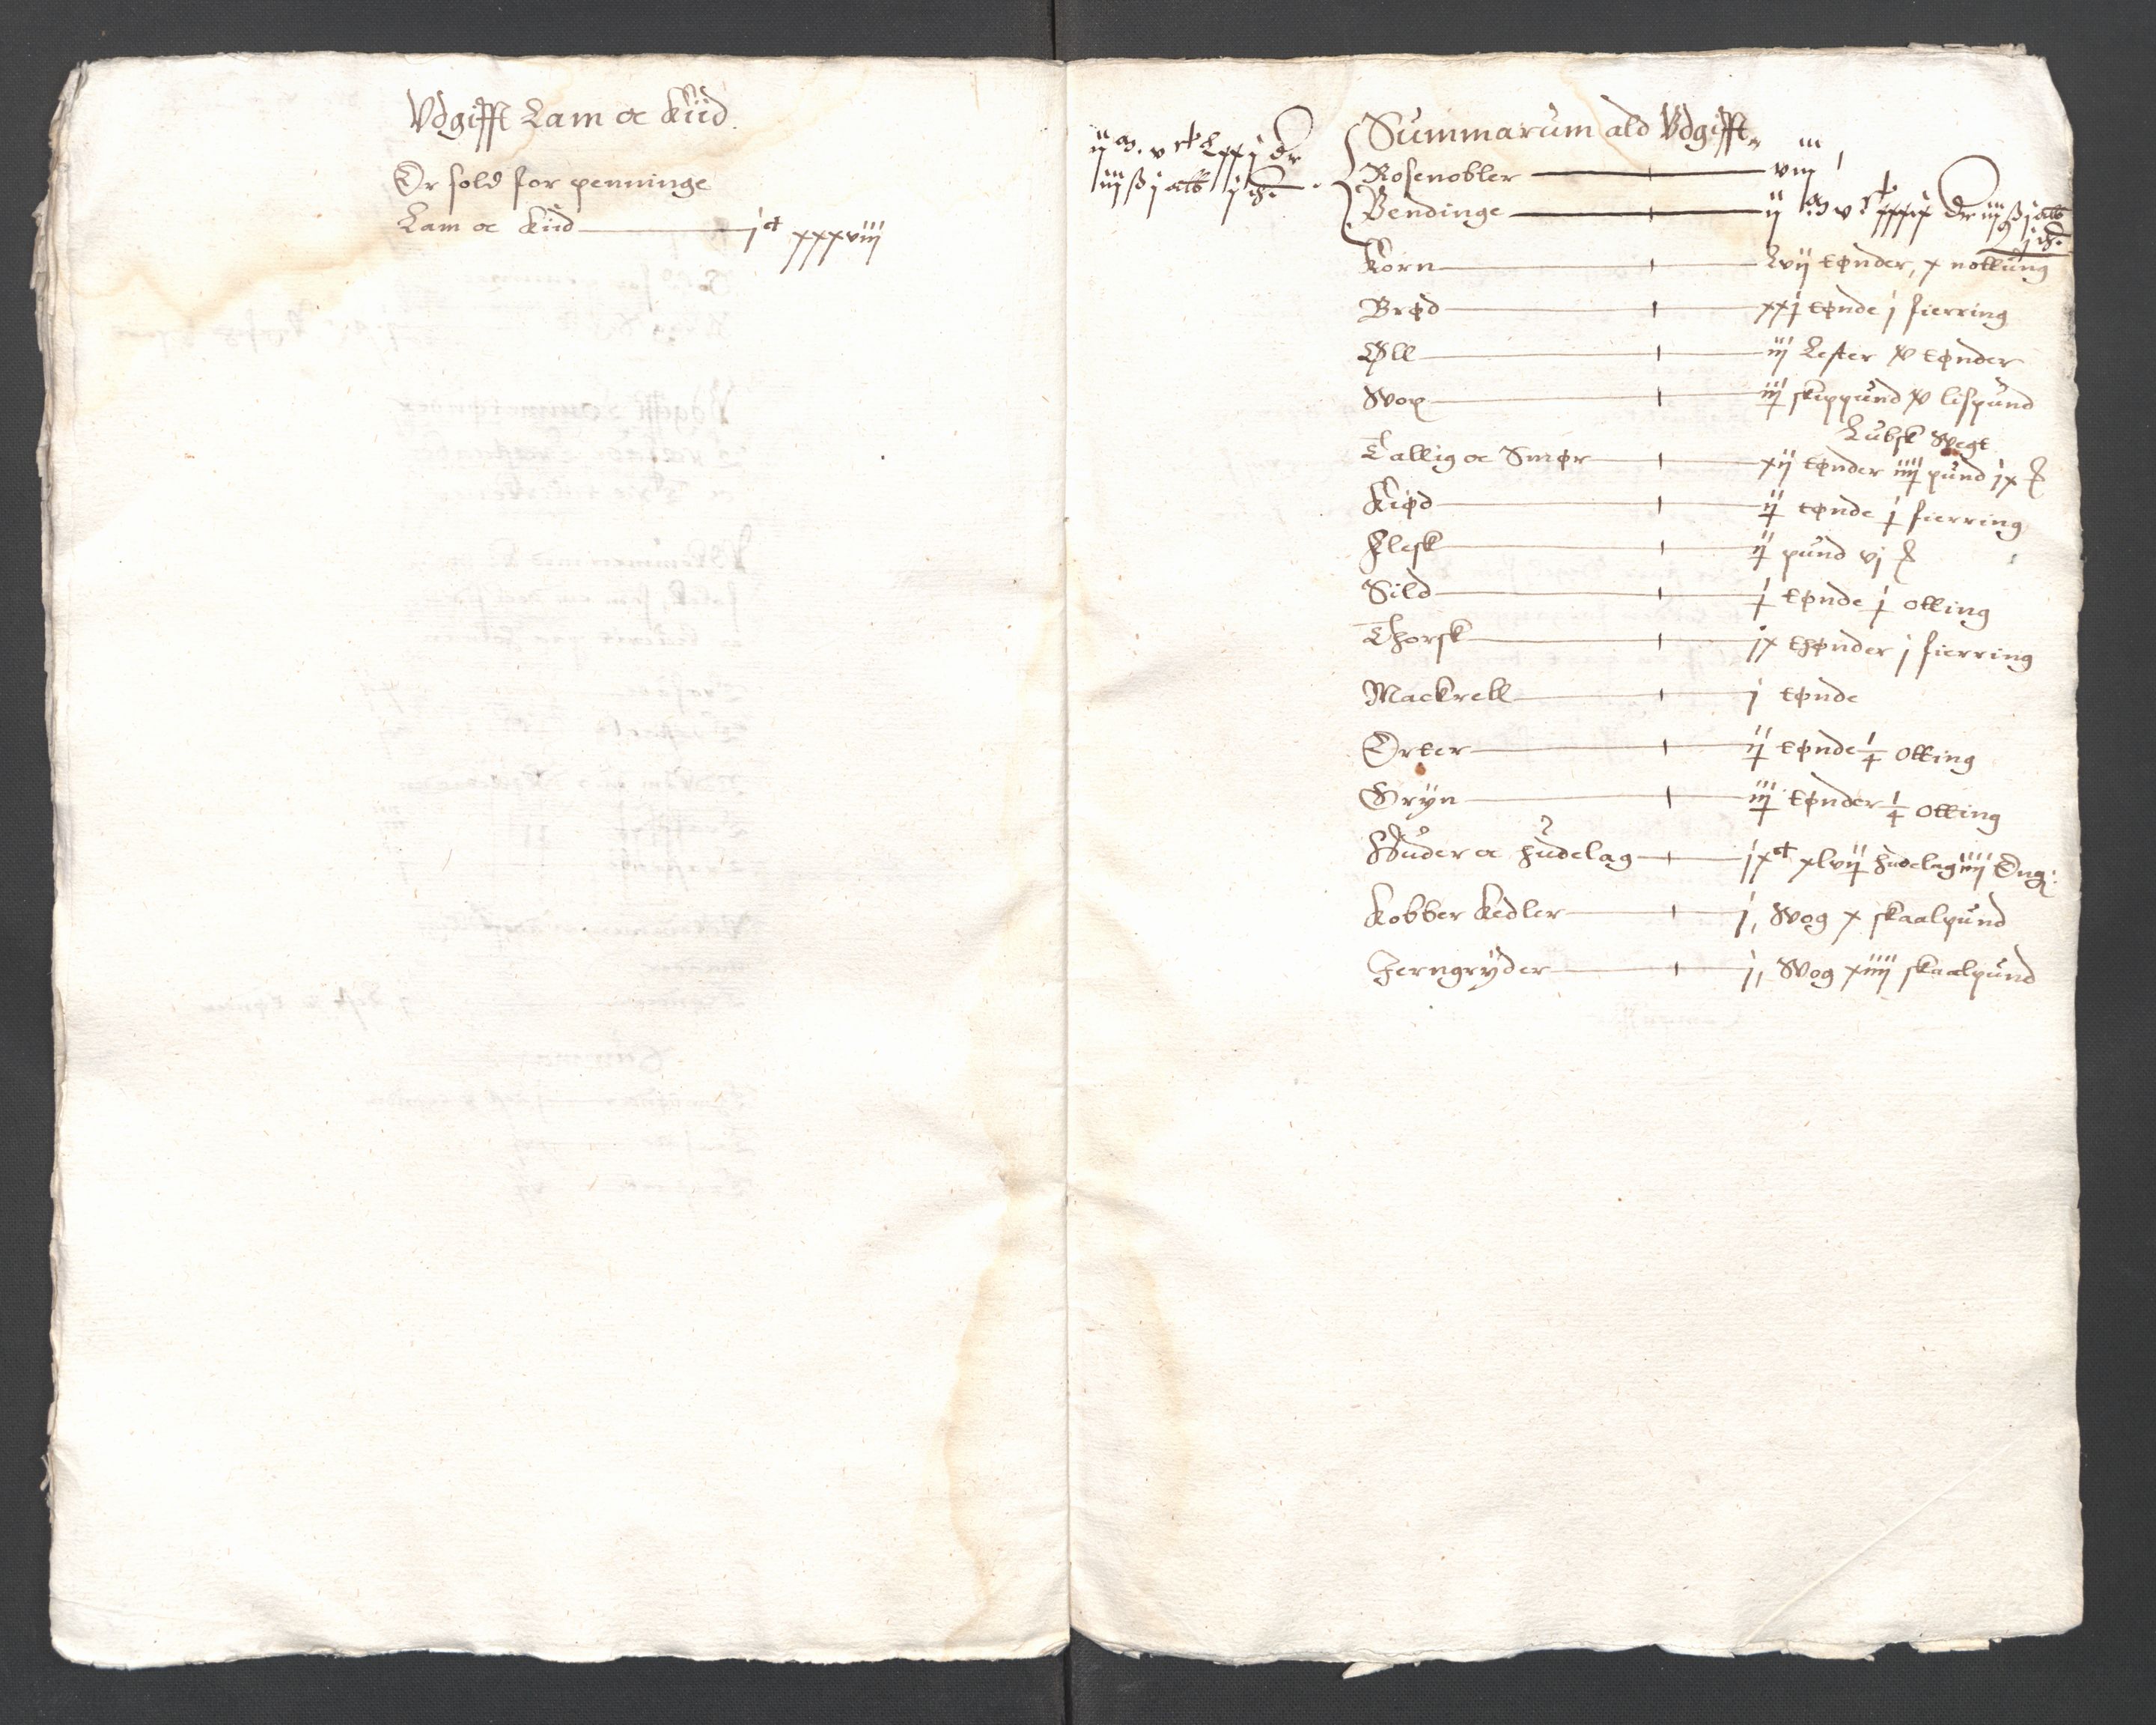 Vdgifft Lam oc Kiid
Er sold for penninge
Lam oc Kiid — jct xxxviij
Summarum ald Vdgifft
ijm. vct Lxxj dr
iiij ß j alb j ₰
Rosenobler — viij
Pendinge — ijm vct xxxix dr iiij ß j alb
j ₰
Korn — Lvij tønder, x nottung
Brød — xxj tønde j fierring
Øll — iij Lester xv tønder
Vox — iij skippund xv lispund
Lubsk Vegt
Tallig oc Smør — xij tønder iiij pund ix
Kiød — ij tønde j fierring
Flesk — ij pund vj
Sild — j tønde j otting
Thorsk — ix thønder j fierring
Mackrell — j tønde
Erter — ij tønde otting
Gryn — iij tønder otting
Huder oc hudelag — ixct xlvij hudelag iiij Eng:
Kobber Kedler — j, Vog x skaalpund
Jerngryder — j, Vog xiiij skaalpund